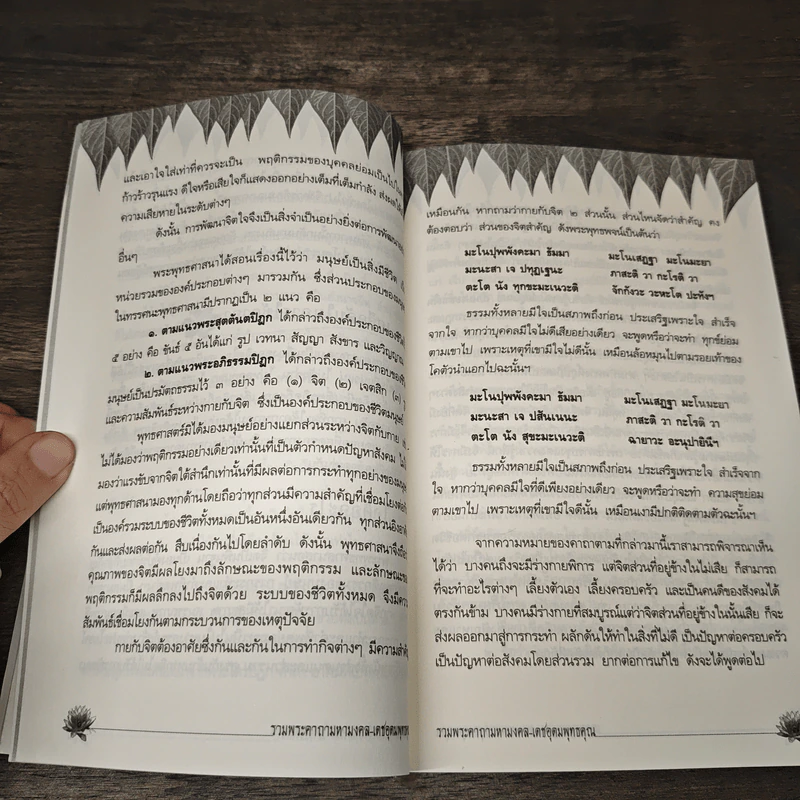 และเอาใจใส่เท่าที่ควรจะเป็น พฤติกรรมของบุคคลย่อมเป็นไปใน
ก้าวร้าวรุนแรง ดีใจหรือเสียใจก็แสดงออกอย่างเต็มที่เต็มกำลัง ส่งผลให้
ความเสียหายในระดับต่างๆ
ดังนั้น การพัฒนาจิตใจจึงเป็นสิ่งจำเป็นอย่างยิ่งต่อการพัฒนา
อื่นๆ
พระพุทธศาสนาได้สอนเรื่องนี้ไว้ว่า มนุษย์เป็นสิ่งมีชีวิต
หน่วยรวมขององค์ประกอบต่างๆ มารวมกัน ซึ่งส่วนประกอบของ
ในทรรศนะพุทธศาสนามีปรากฏเป็น ๒ แนว คือ
๑. ตามแนวพระสุตตันตปิฎก ได้กล่าวถึงองค์ประกอบของชีวิต
๕ อย่าง คือ ขันธ์ ๕ อันได้แก่ รูป เวทนา สัญญา สังขาร และวิญญาณ
๒. ตามแนวพระอภิธรรมปิฎก ได้กล่าวถึงองค์ประกอบของ
มนุษย์เป็นปรมัตถธรรมไว้ ๓ อย่าง คือ (๑) จิต (๒) เจตสิก (๓)
และความสัมพันธ์ระหว่างกายกับจิต ซึ่งเป็นองค์ประกอบของชีวิตมนุษย์
พุทธศาสตร์มิได้มองมนุษย์อย่างแยกส่วนระหว่างจิตกับกาย
ไม่ได้มองว่าพฤติกรรมอย่างเดียวเท่านั้นที่เป็นตัวกำหนดปัญหาสังคม
มองว่าแรงขับจากจิตใต้สำนึกเท่านั้นที่มีผลต่อการกระทำทุกอย่างของ
แต่พุทธศาสนามองทุกด้านโดยถือว่าทุกส่วนมีความสำคัญที่เชื่อมโยงต่อ
เป็นองค์รวมระบบของชีวิตทั้งหมดเป็นอันหนึ่งอันเดียวกัน ทุกส่วนอิงอาศัย
กันและส่งผลต่อกัน สืบเนื่องกันไปโดยลำดับ ดังนั้น พุทธศาสนาจึงถือ
คุณภาพของจิตมีผลโยงมาถึงลักษณะของพฤติกรรม และลักษณะของ
พฤติกรรมก็มีผลลึกลงไปถึงจิตด้วย ระบบของชีวิตทั้งหมด จึงมีความ
สัมพันธ์เชื่อมโยงกันตามกระบวนการของเหตุปัจจัย
กายกับจิตต้องอาศัยซึ่งกันและกันในการทำกิจต่างๆ มีความสำคัญ
รวมพระคาถามหามงคล-เดชอุดมพุทธคุณ
เหมือนกัน หากถามว่ากายกับจิต ๒ ส่วนนั้น ส่วนไหนจัดว่าสำคัญ คง
ต้องตอบว่า ส่วนของจิตสำคัญ ดังพระพุทธพจน์เป็นต้นว่า
มะโนปุพพังคะมา ธัมมา มะโนเสฏฐา มะโนมะยา
มะนะสา เจ ปทุฏเฐนะ ภาสะติ วา กะโรติ วา
ตะโต นัง ทุกขะมะเนวะติ จักกังวะ วะหะโต ปะทังฯ
ธรรมทั้งหลายมีใจเป็นสภาพถึงก่อน ประเสริฐเพราะใจ สำเร็จ
จากใจ หากว่าบุคคลมีใจไม่ดีเสียอย่างเดียว จะพูดหรือว่าจะทำ ทุกข์ย่อม
ตามเขาไป เพราะเหตุที่เขามีใจไม่ดีนั้น เหมือนล้อหมุนไปตามรอยเท้าของ
โคตัวนำแอกไปฉะนั้นฯ
มะโนปุพพังคะมา ธัมมา มะโนเสฏฐา มะโนมะยา
มะนะสา เจ ปสันเนนะ ภาสะติ วา กะโรติ วา
ตะโต นัง สุขะมะเนวะติ ฉายาวะ อะนุปายินีฯ
ธรรมทั้งหลายมีใจเป็นสภาพถึงก่อน ประเสริฐเพราะใจ สำเร็จจาก
ใจ หากว่าบุคคลมีใจที่ดีเพียงอย่างเดียว จะพูดหรือว่าจะทำ ความสุขย่อม
ตามเขาไป เพราะเหตุที่เขามีใจดีนั้น เหมือนเงามีปกติติดตามตัวฉะนั้นฯ
จากความหมายของคาถาตามที่กล่าวมานี้เราสามารถพิจารณาเห็น
ได้ว่า บางคนถึงจะมีร่างกายพิการ แต่จิตส่วนที่อยู่ข้างในไม่เสีย ก็สามารถ
ที่จะทำอะไรต่างๆ เลี้ยงตัวเอง เลี้ยงครอบครัว และเป็นคนดีของสังคมได้
ตรงกันข้าม บางคนมีร่างกายที่สมบูรณ์แต่ว่าจิตส่วนที่อยู่ข้างในนั้นเสีย ก็จะ
ส่งผลออกมาสู่การกระทำ ผลักดันให้ทำในสิ่งที่ไม่ดี เป็นปัญหาต่อครอบครัว
เป็นปัญหาต่อสังคมโดยส่วนรวม ยากต่อการแก้ไข ดังจะได้พูดต่อไป
รวมพระคาถามหามงคล-เดชอุดมพุทธคุณ